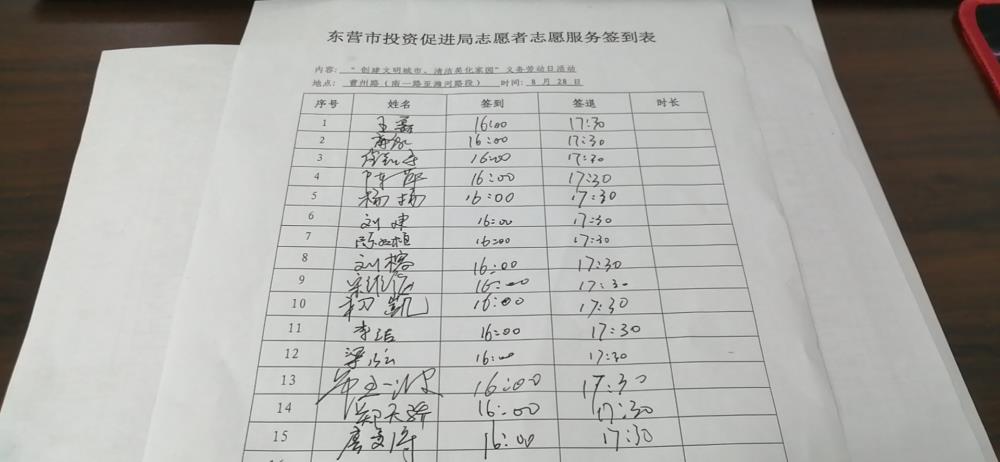 东营市投资促进局志愿者志愿服务签到表
内容: “创建文明城市、清洁美化家园”义务劳动日活动
地点: 曹州路(南一路至潍河路段) 时间: 8 月 28 日
序号 姓名 签到 签退 时长
1 王磊 16:00 17:30
2 16:00 17:30
3 16:00 17:30
4 陈萍 16:00 17:30
5 杨扬 16:00 17:30
6 刘建 16:00 17:30
7 16:00 17:30
8 刘榕 16:00 17:30
9 16:00 17:30
10 初凯 16:00 17:30
11 李洁 16:00 17:30
12 16:00 17:30
13 16:00 17:30
14 16:00 17:30
15 16:00 17:30